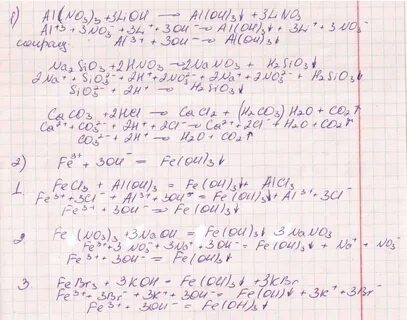 1) Al(NO₃)₃ + 3LiOH → Al(OH)₃↓ + 3LiNO₃
Al³⁺ + 3NO₃⁻ + 3Li⁺ + 3OH⁻ → Al(OH)₃↓ + 3Li⁺ + 3NO₃⁻
сокращ. Al³⁺ + 3OH⁻ → Al(OH)₃↓
Na₂SiO₃ + 2HNO₃ → 2NaNO₃ + H₂SiO₃↓
2Na⁺ + SiO₃²⁻ + 2H⁺ + 2NO₃⁻ → 2Na⁺ + 2NO₃⁻ + H₂SiO₃↓
SiO₃²⁻ + 2H⁺ → H₂SiO₃↓
CaCO₃ + 2HCl → CaCl₂ + (H₂CO₃) H₂O + CO₂↑
Ca²⁺ + CO₃²⁻ + 2H⁺ + 2Cl⁻ → Ca²⁺ + 2Cl⁻ + H₂O + CO₂↑
CO₃²⁻ + 2H⁺ → H₂O + CO₂↑
2) Fe³⁺ + 3OH⁻ = Fe(OH)₃↓
1. FeCl₃ + Al(OH)₃ = Fe(OH)₃↓ + AlCl₃
Fe³⁺ + 3Cl⁻ + Al³⁺ + 3OH⁻ = Fe(OH)₃↓ + Al³⁺ + 3Cl⁻
Fe³⁺ + 3OH⁻ = Fe(OH)₃↓
2 Fe(NO₃)₃ + 3NaOH = Fe(OH)₃↓ 3NaNO₃
Fe³⁺ + 3NO₃⁻ + 3Na⁺ + 3OH⁻ = Fe(OH)₃↓ + Na⁺ + NO₃⁻
Fe³⁺ + 3OH⁻ = Fe(OH)₃↓
3. FeBr₃ + 3KOH = Fe(OH)₃↓ + 3KBr
Fe³⁺ + 3Br⁻ + 3K⁺ + 3OH⁻ = Fe(OH)↓ + 3K⁺ + 3Br⁻
Fe³⁺ + 3OH⁻ = Fe(OH)₃↓